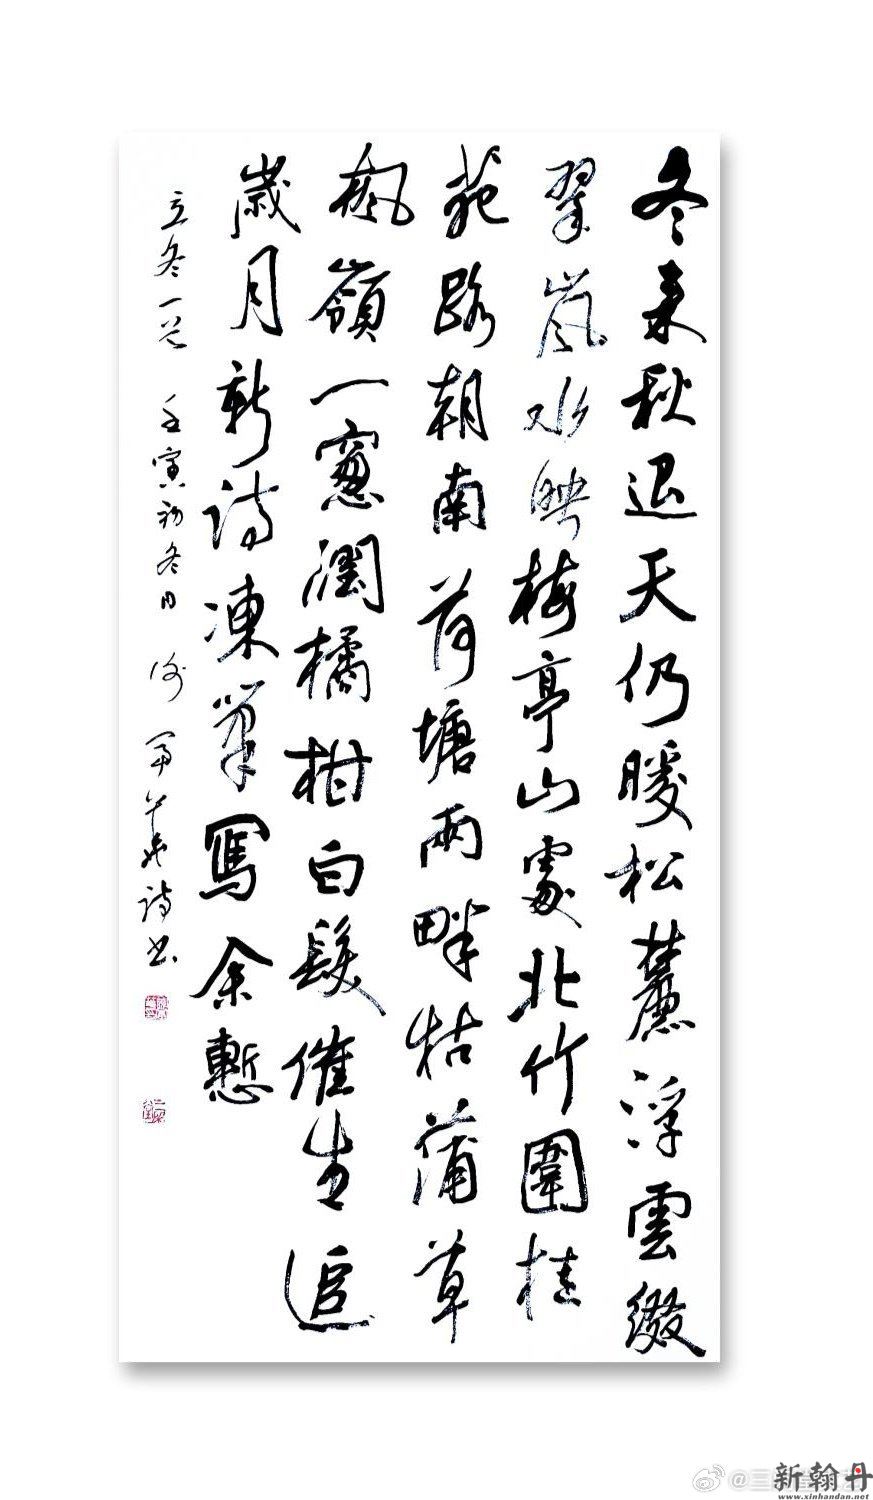 冬来秋退天仍暖松麓浮雲綴
翠嵐水映梅亭山處北竹圍桂
苑路朝南荷塘兩畔枯蒲草
楓嶺一窓潤橘柑白髮催生追
歲月新詩凍筆寫余慙
立冬一首 壬寅初冬日 詩書
新翰丹
www.xinhandan.net